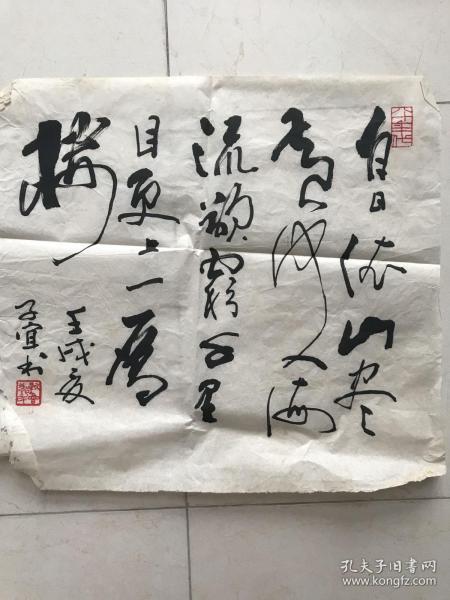 白日依山尽
黄河入海
流欲穷千里
目更上一层
楼
壬戌夏
子宜书
孔夫子旧书网
www.kongfz.com